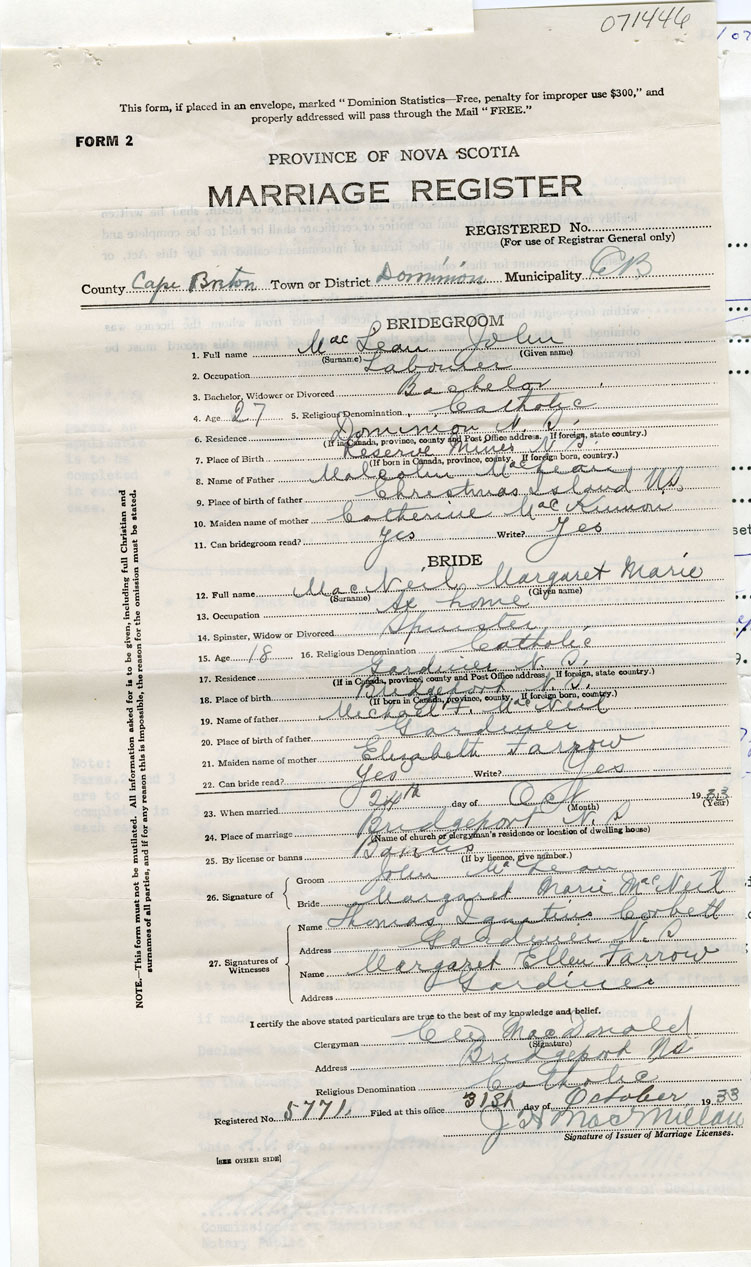 071446
This form, if placed in an envelope, marked "Dominion Statistics—Free, penalty for improper use $300," and
properly addressed will pass through the Mail "FREE."
FORM 2
PROVINCE OF NOVA SCOTIA
MARRIAGE REGISTER
REGISTERED No.
(For use of Registrar General only)
County Cape Breton Town or District Dominion Municipality CB
BRIDEGROOM
1. Full name MacLean John
(Surname) (Given name)
2. Occupation Labourer
3. Bachelor, Widower or Divorced Bachelor
4. Age 27 5. Religious Denomination Catholic
6. Residence Dominion N.S.
(If in Canada, province, county and Post Office address. If foreign, state country.)
7. Place of Birth Reserve Mines N.S.
(If born in Canada, province, county. If foreign born, country.)
8. Name of Father Malcolm MacLean
9. Place of birth of father Christmas Island N.S.
10. Maiden name of mother Catherine MacKinnon
11. Can bridegroom read? Yes Write? Yes
BRIDE
12. Full name MacNeil Margaret Marie
(Surname) (Given name)
13. Occupation At home
14. Spinster, Widow or Divorced Spinster
15. Age 18 16. Religious Denomination Catholic
17. Residence Gardiner N.S.
(If in Canada, province, county and Post Office address. If foreign, state country.)
18. Place of birth Bridgeport N.S.
(If born in Canada, province, county. If foreign born, country.)
19. Name of father Michael F. MacNeil
20. Place of birth of father Gardiner
21. Maiden name of mother Elizabeth Farrow
22. Can bride read? Yes Write? Yes
23. When married 24th day of Oct 1933
(Month) (Year)
24. Place of marriage Bridgeport N.S
(Name of church or clergyman's residence or location of dwelling house)
25. By license or banns Banns
(If by licence, give number.)
26. Signature of
Groom John McLean
Bride Margaret Marie MacNeil
27. Signatures of Witnesses
Name Thomas Ignatius Corbett
Address Gardiner N.S
Name Margaret Ellen Farrow
Address Gardiner
I certify the above stated particulars are true to the best of my knowledge and belief.
Clergyman MacDonald
(Signature)
Address Bridgeport NS
Religious Denomination Catholic
Registered No. 5771 Filed at this office 31st day of October 1933
MacMillan
Signature of Issuer of Marriage Licenses.
[SEE OTHER SIDE]
NOTE.—This form must not be mutilated. All information asked for is to be given, including full Christian and
surnames of all parties, and if for any reason this is impossible, the reason for the omission must be stated.